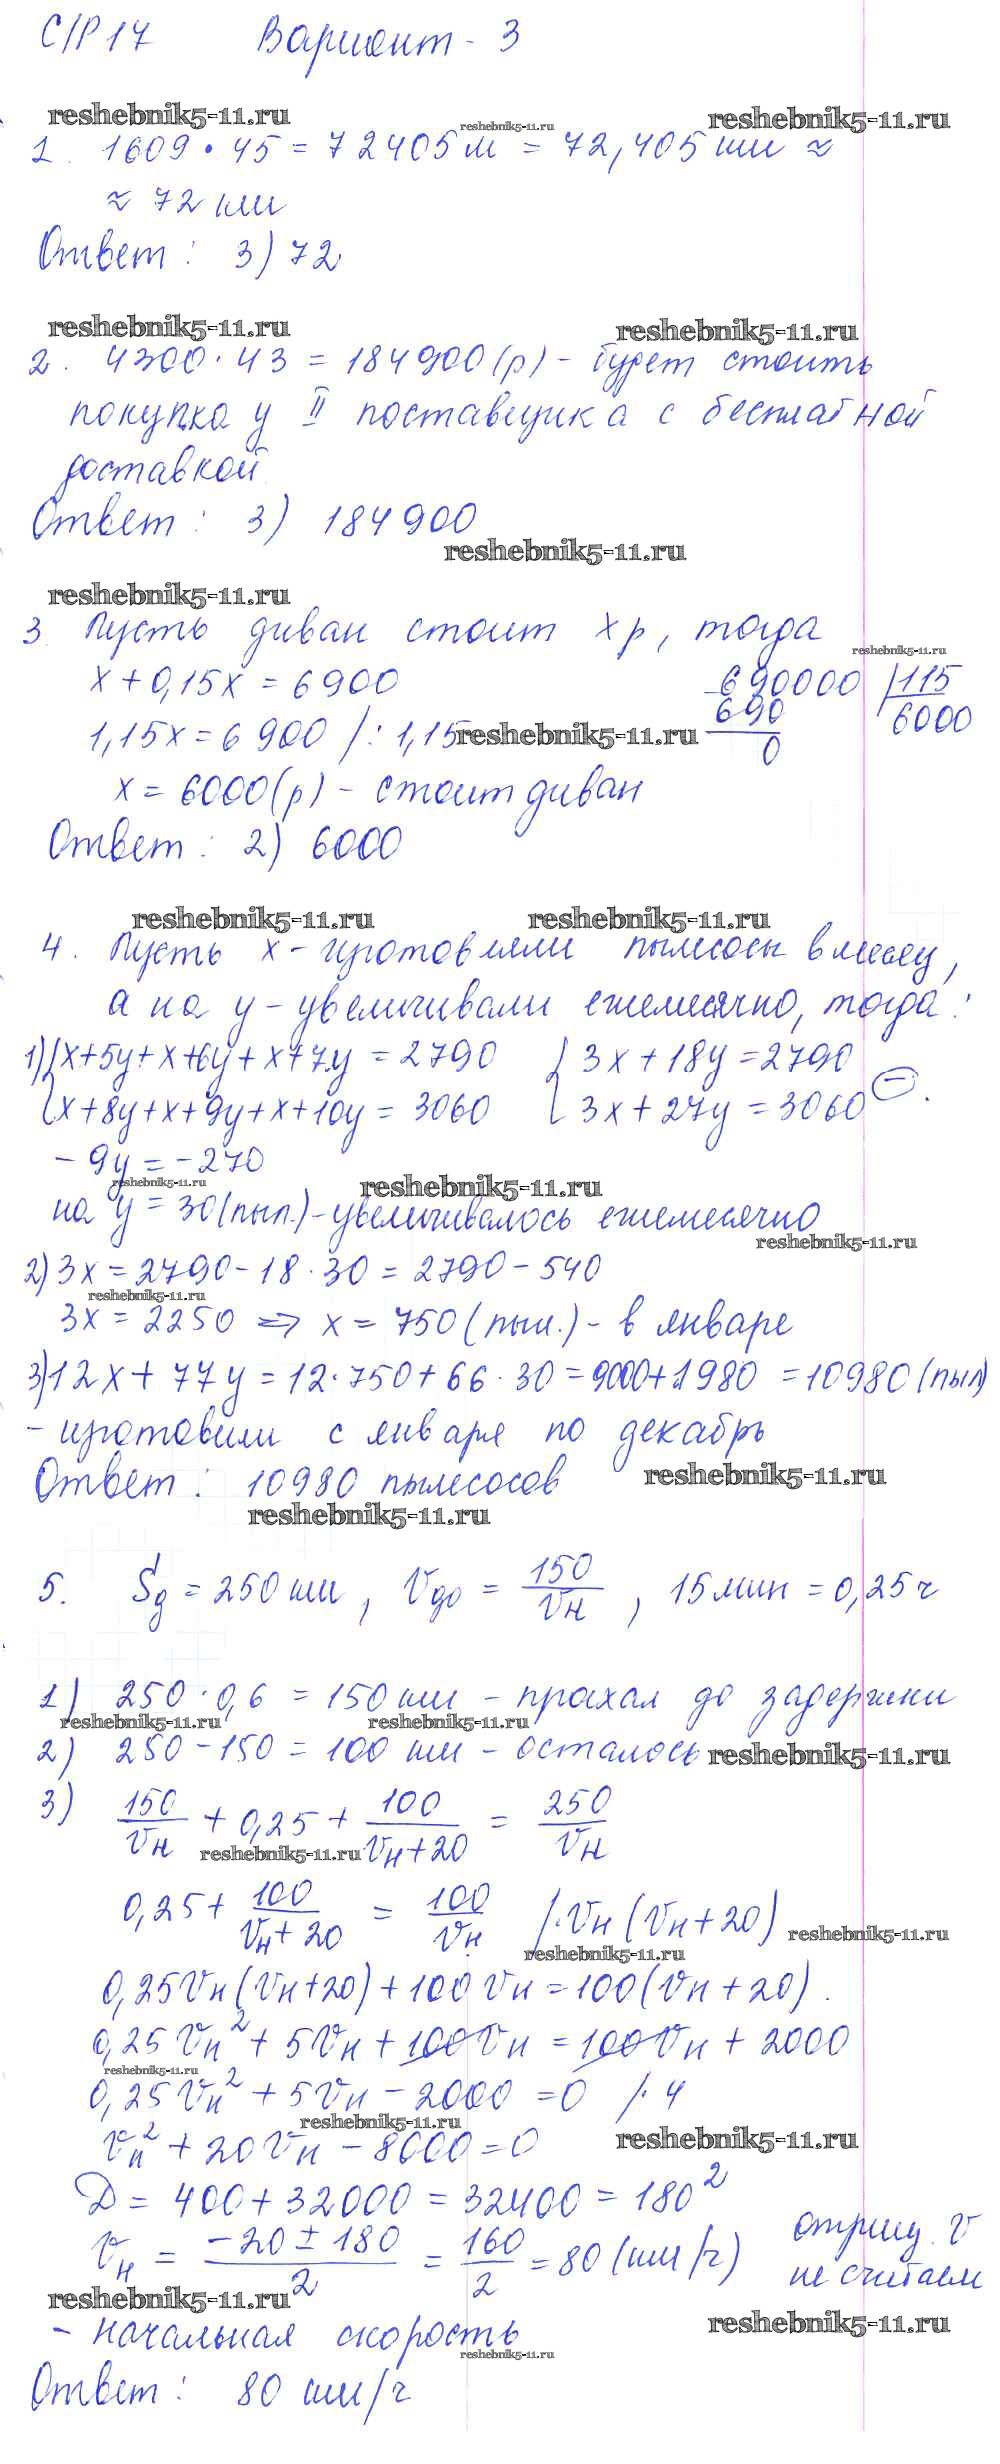 С/Р 17 Вариант - 3
reshebnik5-11.ru reshebnik5-11.ru reshebnik5-11.ru
1. 1609 · 45 = 72405 м = 72,405 км ≈
≈ 72 км
Ответ : 3) 72
reshebnik5-11.ru reshebnik5-11.ru
2. 4300 · 43 = 184900 (р) - будет стоить
покупка у II поставщика с бесплатной
доставкой
Ответ : 3) 184900
reshebnik5-11.ru
reshebnik5-11.ru
3. Пусть диван стоит х р, тогда
reshebnik5-11.ru
х + 0,15х = 6900 690000 | 115
1,15х = 6900 / : 1,15 reshebnik5-11.ru 690 6000
0
х = 6000 (р) - стоит диван
Ответ : 2) 6000
reshebnik5-11.ru reshebnik5-11.ru
4. Пусть х - изготовляли пылесосы в месяц,
а на у - увеличивали ежемесячно, тогда :
1) { х+5у+х+6у+х+7у = 2790 { 3х + 18у = 2790
{ х+8у+х+9у+х+10у = 3060 { 3х + 27у = 3060 (−).
- 9у = - 270
reshebnik5-11.ru reshebnik5-11.ru
на у = 30 (пыл.) - увеличивалось ежемесячно
reshebnik5-11.ru
2) 3х = 2790 - 18 · 30 = 2790 - 540
reshebnik5-11.ru
3х = 2250 => х = 750 (пыл.) - в январе
3) 12х + 77у = 12 · 750 + 66 · 30 = 9000 + 1980 = 10980 (пыл)
- изготовили с января по декабрь
Ответ : 10980 пылесосов reshebnik5-11.ru
reshebnik5-11.ru
5. Sд = 250 км , Vдо = 150/Vн , 15 мин = 0,25 ч
1) 250 · 0,6 = 150 км - проехал до задержки
reshebnik5-11.ru reshebnik5-11.ru
2) 250 - 150 = 100 км - осталось reshebnik5-11.ru
3) 150/Vн + 0,25 + 100/(Vн + 20) = 250/Vн
reshebnik5-11.ru
0,25 + 100/(Vн + 20) = 100/Vн / · Vн (Vн + 20)
reshebnik5-11.ru reshebnik5-11.ru
0,25Vн (Vн + 20) + 100 Vн = 100 (Vн + 20) .
0,25 Vн² + 5Vн + 100Vн = 100Vн + 2000
reshebnik5-11.ru
0,25 Vн² + 5Vн - 2000 = 0 / · 4
reshebnik5-11.ru
Vн² + 20Vн - 8000 = 0 reshebnik5-11.ru
D = 400 + 32000 = 32400 = 180²
Vн = (-20 ± 180)/2 = 160/2 = 80 (км/ч) отриц. V
не считаем
reshebnik5-11.ru reshebnik5-11.ru
- начальная скорость
reshebnik5-11.ru
Ответ : 80 км/ч